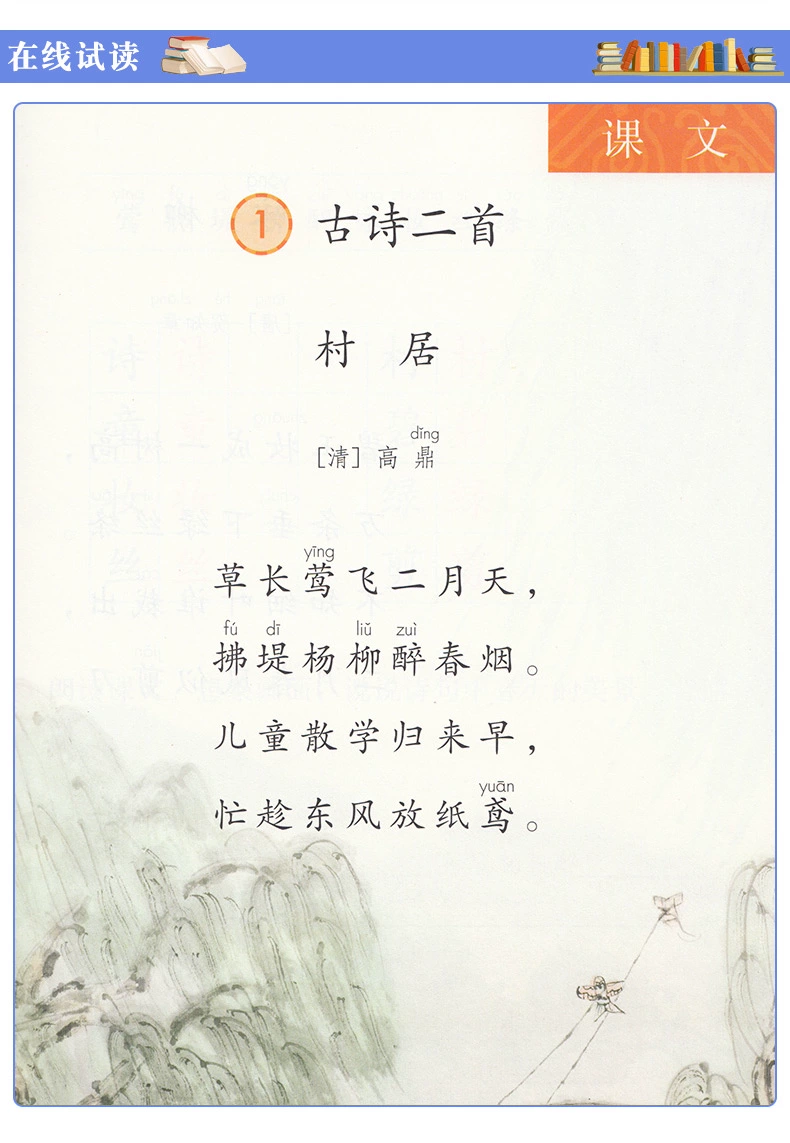 在线试读
课 文
1 古诗二首
村 居
dǐng
[清] 高 鼎
yīng
草长莺飞二月天，
fú dī liǔ zuì
拂堤杨柳醉春烟。
儿童散学归来早，
yuān
忙趁东风放纸鸢。